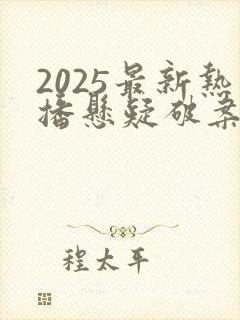 2025最新热
播悬疑破案
程太平